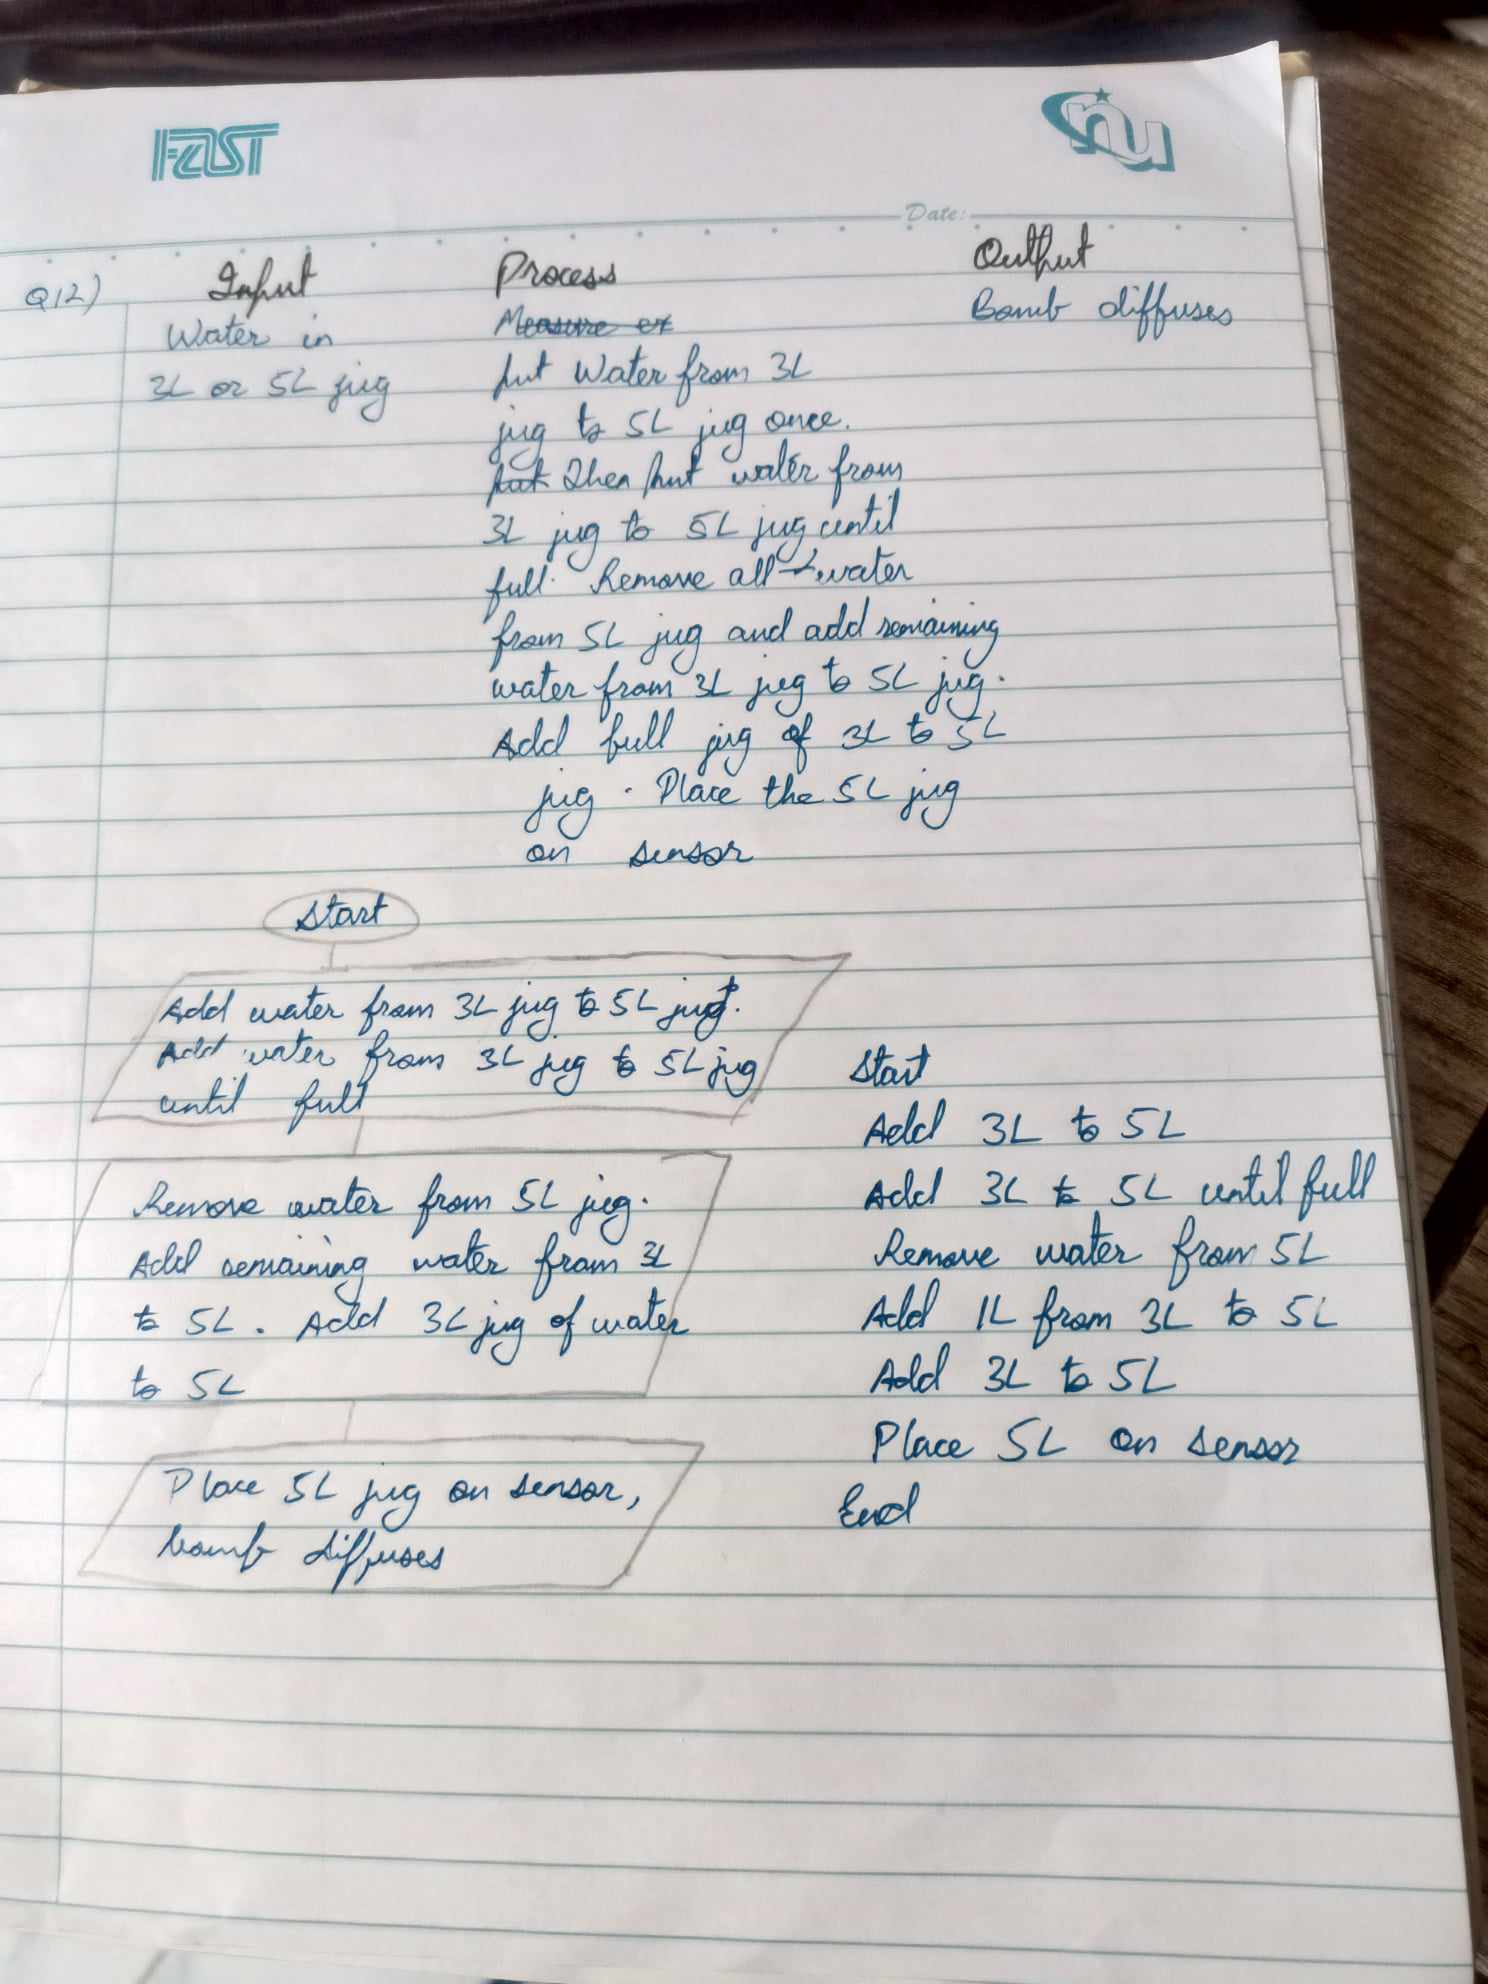 FAST
nu
Date:
Q12)
Input
Water in
3L or 5L jug
Process
Measure ex
put Water from 3L
jug to 5L jug once.
put Then put water from
3L jug to 5L jug until
full. Remove all water
from 5L jug and add remaining
water from 3L jug to 5L jug.
Add full jug of 3L to 5L
jug. Place the 5L jug
on sensor
Output
Bomb diffuses
Start
Add water from 3L jug to 5L jug.
Add water from 3L jug to 5L jug
until full
Remove water from 5L jug.
Add remaining water from 3L
to 5L. Add 3L jug of water
to 5L
Place 5L jug on sensor,
bomb diffuses
Start
Add 3L to 5L
Add 3L to 5L until full
Remove water from 5L
Add 1L from 3L to 5L
Add 3L to 5L
Place 5L on sensor
End